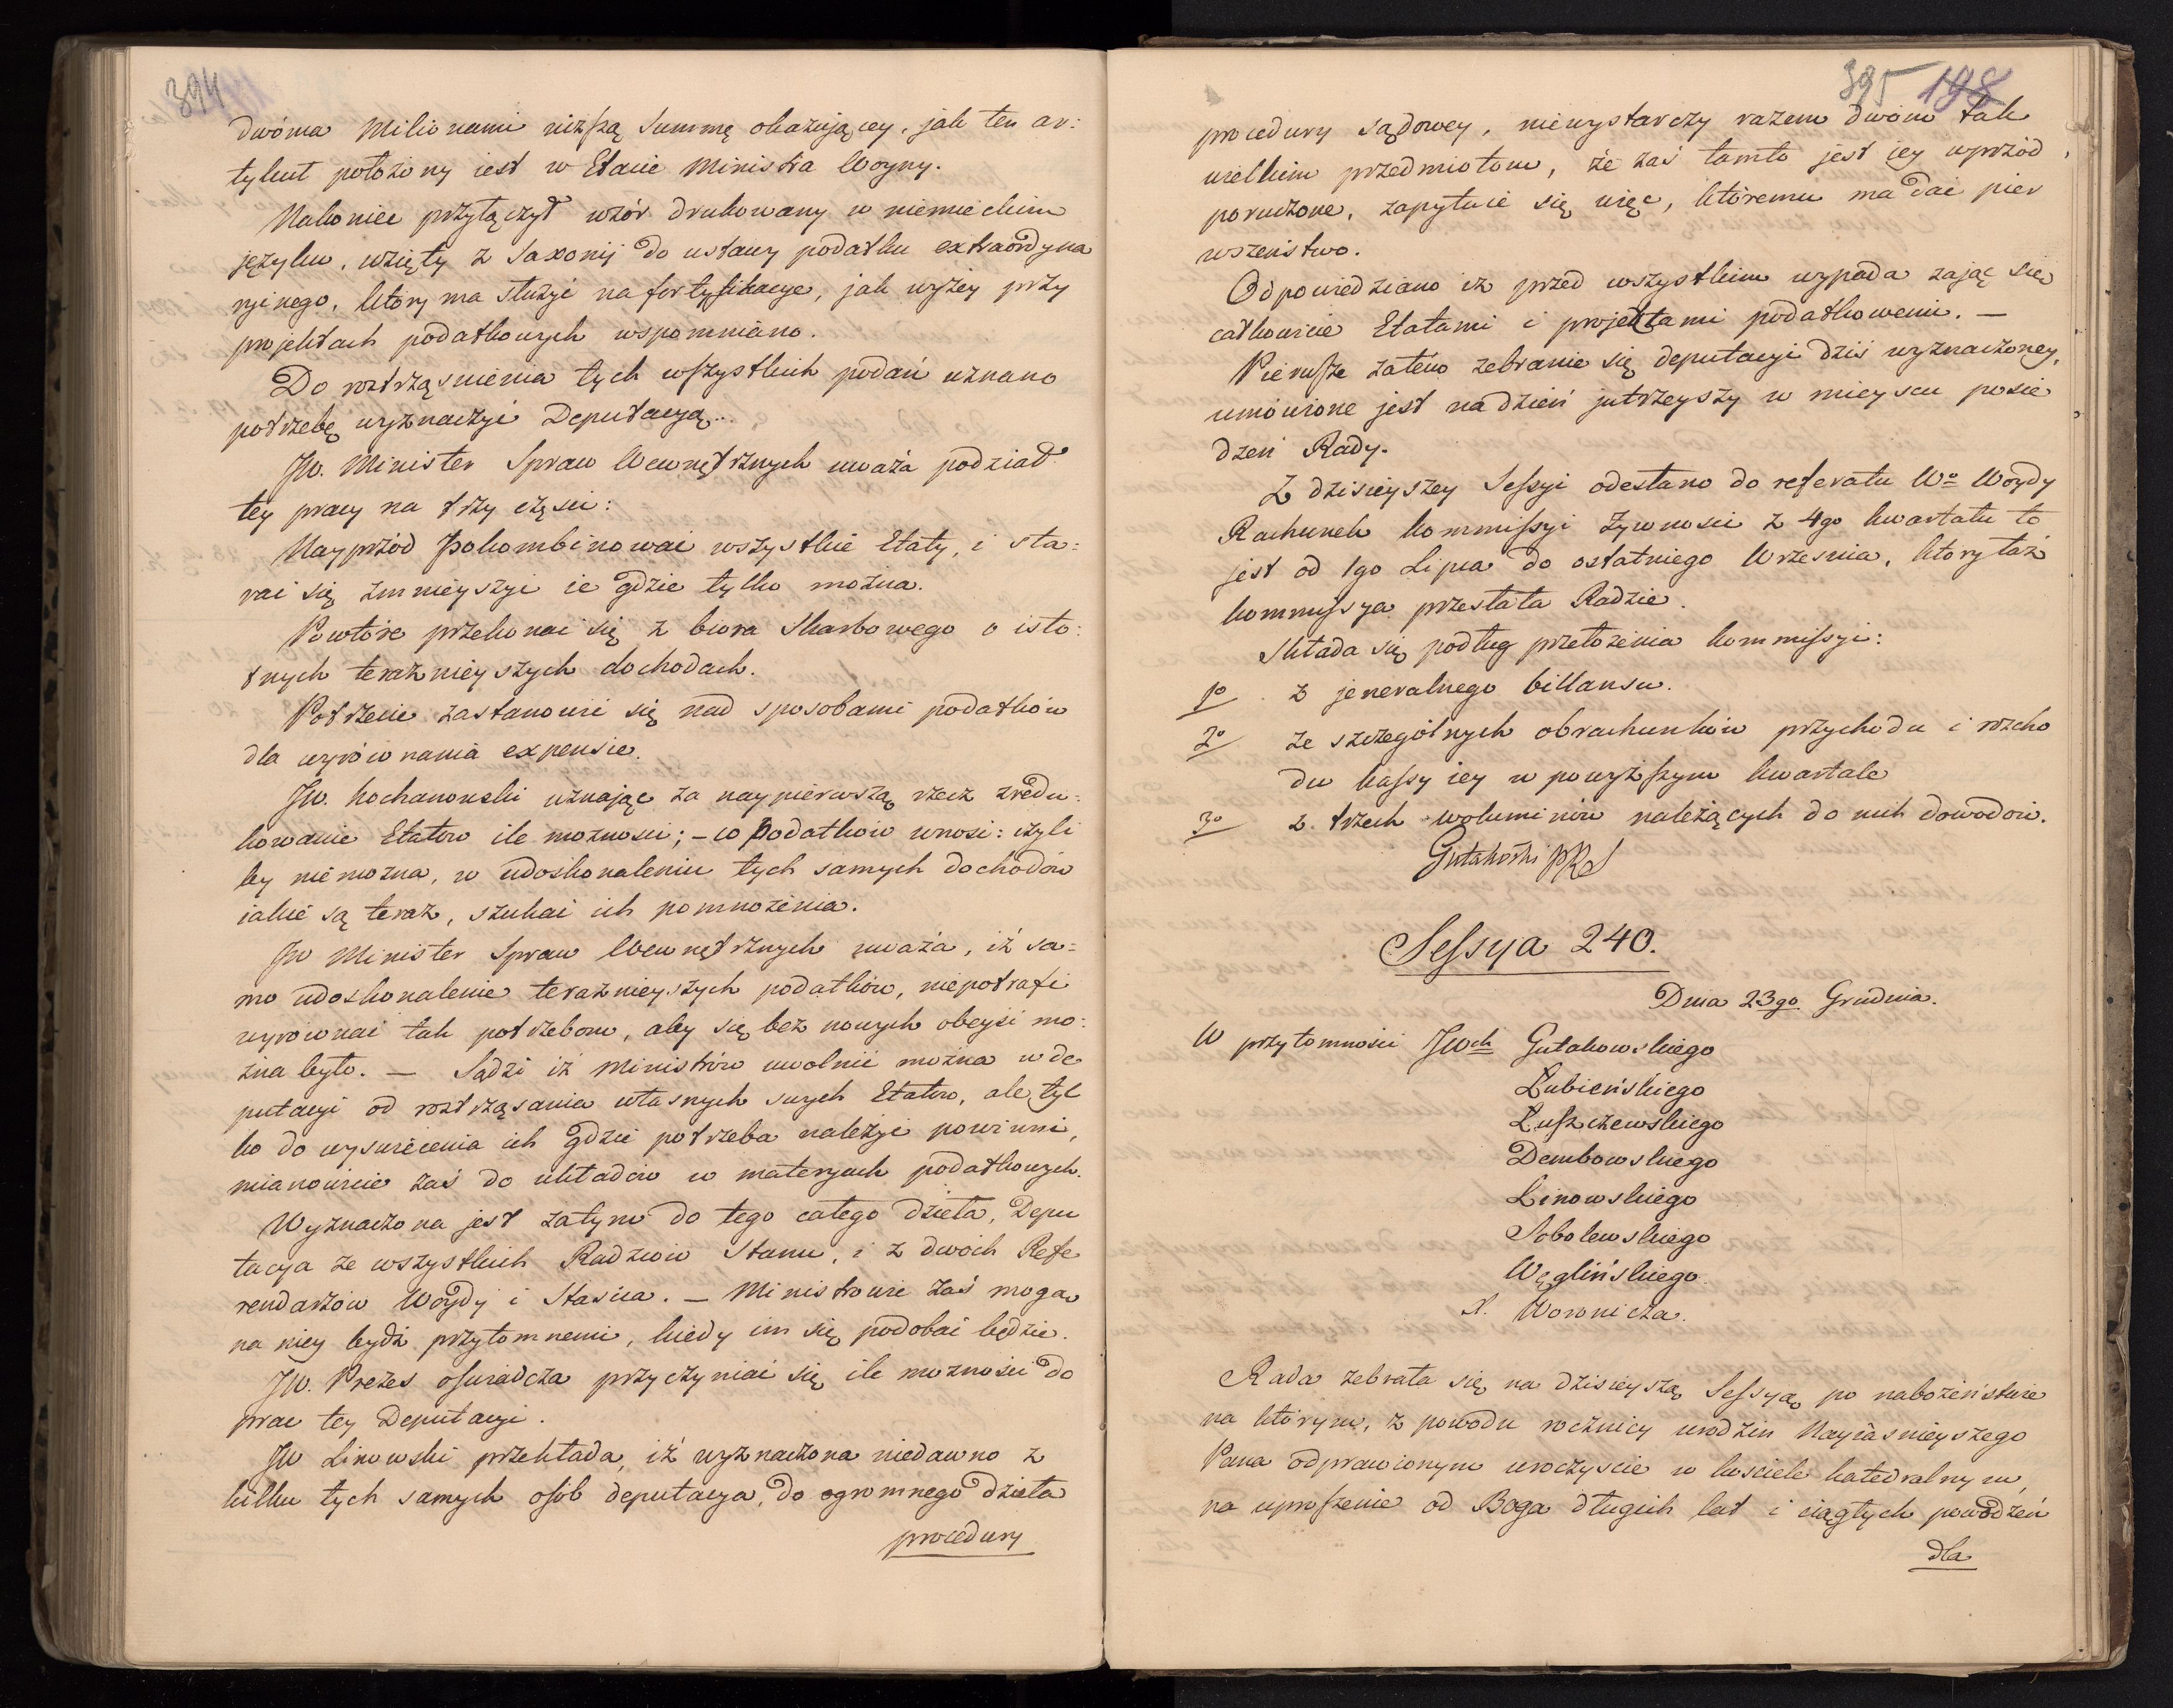 394
dwóma Milionami niższą Summę okazującey, jak ten ar:
tykuł położony iest w Etacie Ministra Woyny.
Nakoniec przyłączył wzór drukowany w niemieckim
języku, wzięty z Saxonij do ustawy podatku extraordyna
ryinego, który ma służyć na fortyfikacye, jak wyżey przy
projektach podatkowych wspomniano.
Do roztrząśnienia tych wszystkich podań uznano
potrzebę wyznaczyć Deputacyą.
JW. Minister Spraw Wewnętrznych uważa podział
tey pracy na trzy części:
Nayprzód Pokombinować wszystkie Etaty, i sta:
rać się zmnieyszyć ie gdzie tylko można.
Powtóre przekonać się z biora Skarbowego o isto:
tnych teraznieyszych dochodach.
Potrzecie zastanowić się nad sposobami podatków
dla wyrównania expensie.
JW. Kochanowski uznając za naypierwszą rzecz zredu:
kowanie Etatów ile możnosci; – co Podatków wnosi: czyli
by niemożna, w udoskonaleniu tych samych dochodów
iakie są teraz, szukać ich pomnożenia.
JW Minister Spraw Wewnętrznych uważa, iż sa=
mo udoskonalenie teraznieyszych podatków, niepotrafi
wyrównać tak potrzebom, aby się bez nowych obeyść mo:
żna było. – Sądzi iż Ministrów uwolnić można w de
putacyi od roztrząsania własnych swych Etatów, ale tyl
ko do wyswiecenia ich gdzie potrzeba należyć powinni,
mianowicie zaś do układów w materyach podatkowych.
Wyznaczona jest zatym do tego całego dzieła, Depu
tacya ze wszystkich Radzców Stanu, i z dwóch Refe
rendarzów Woydy i Stasica. – Ministrowie zaś mogą
na niey bydź przytomnemi, kiedy im się podobać będzie.
JW. Prezes oświadcza przyczyniać się ile możności do
prac tey Deputacyi.
JW Linowski przekłada, iż wyznaczona niedawno z
kilku tych samych osób deputacya, do ogromnego dzieła
procedury
395 198
procedury sądowey, niewystarczy razem dwóm tak
wielkim przedmiotom, że zaś tamto jest iey wprzód
poruczone, zapytuie się więc, któremu ma dać pier
wszeństwo.
Odpowiedziano iż przed wszystkim wypada zająć się
całkowicie Etatami i projektami podatkowemi. –
Pierwsze zatém zebranie się deputacyi dziś wyznaczoney,
umówione jest na dzień jutrzeyszy w mieyscu posie
dzeń Rady.
Z dzisieyszey Sessyi odesłano do referatu Wo Woydy
Rachunek kommissyi żywnosci z 4go kwartału to
jest od 1go Lipca do ostatniego Września, który taż
kommissya przesłała Radzie.
Składa się podług przełożenia kommissyi:
1o z jeneralnego billansu.
2o ze szczególnych obrachunków przychodu i rozcho
du kassy iey w powyższym kwartale
3o z trzech woluminów należących do nich dowodów.
Gutakowski PRS
Sessya 240.
Dnia 23go Grudnia.
W przytomnosci JWch Gutakowskiego
Łubieńskiego
Łuszczewskiego
Dembowskiego
Linowskiego
Sobolewskiego
Węglińskiego
X. Woronicza.
Rada zebrała się na dzisieyszą Sessyą, po nabożeństwie
na którym, z powodu rocznicy urodzin Nayiaśnieyszego
Pana odprawionym uroczyscie w kościele katedralnym,
na uproszenie od Boga długich lat i ciągłych powodzeń
dla